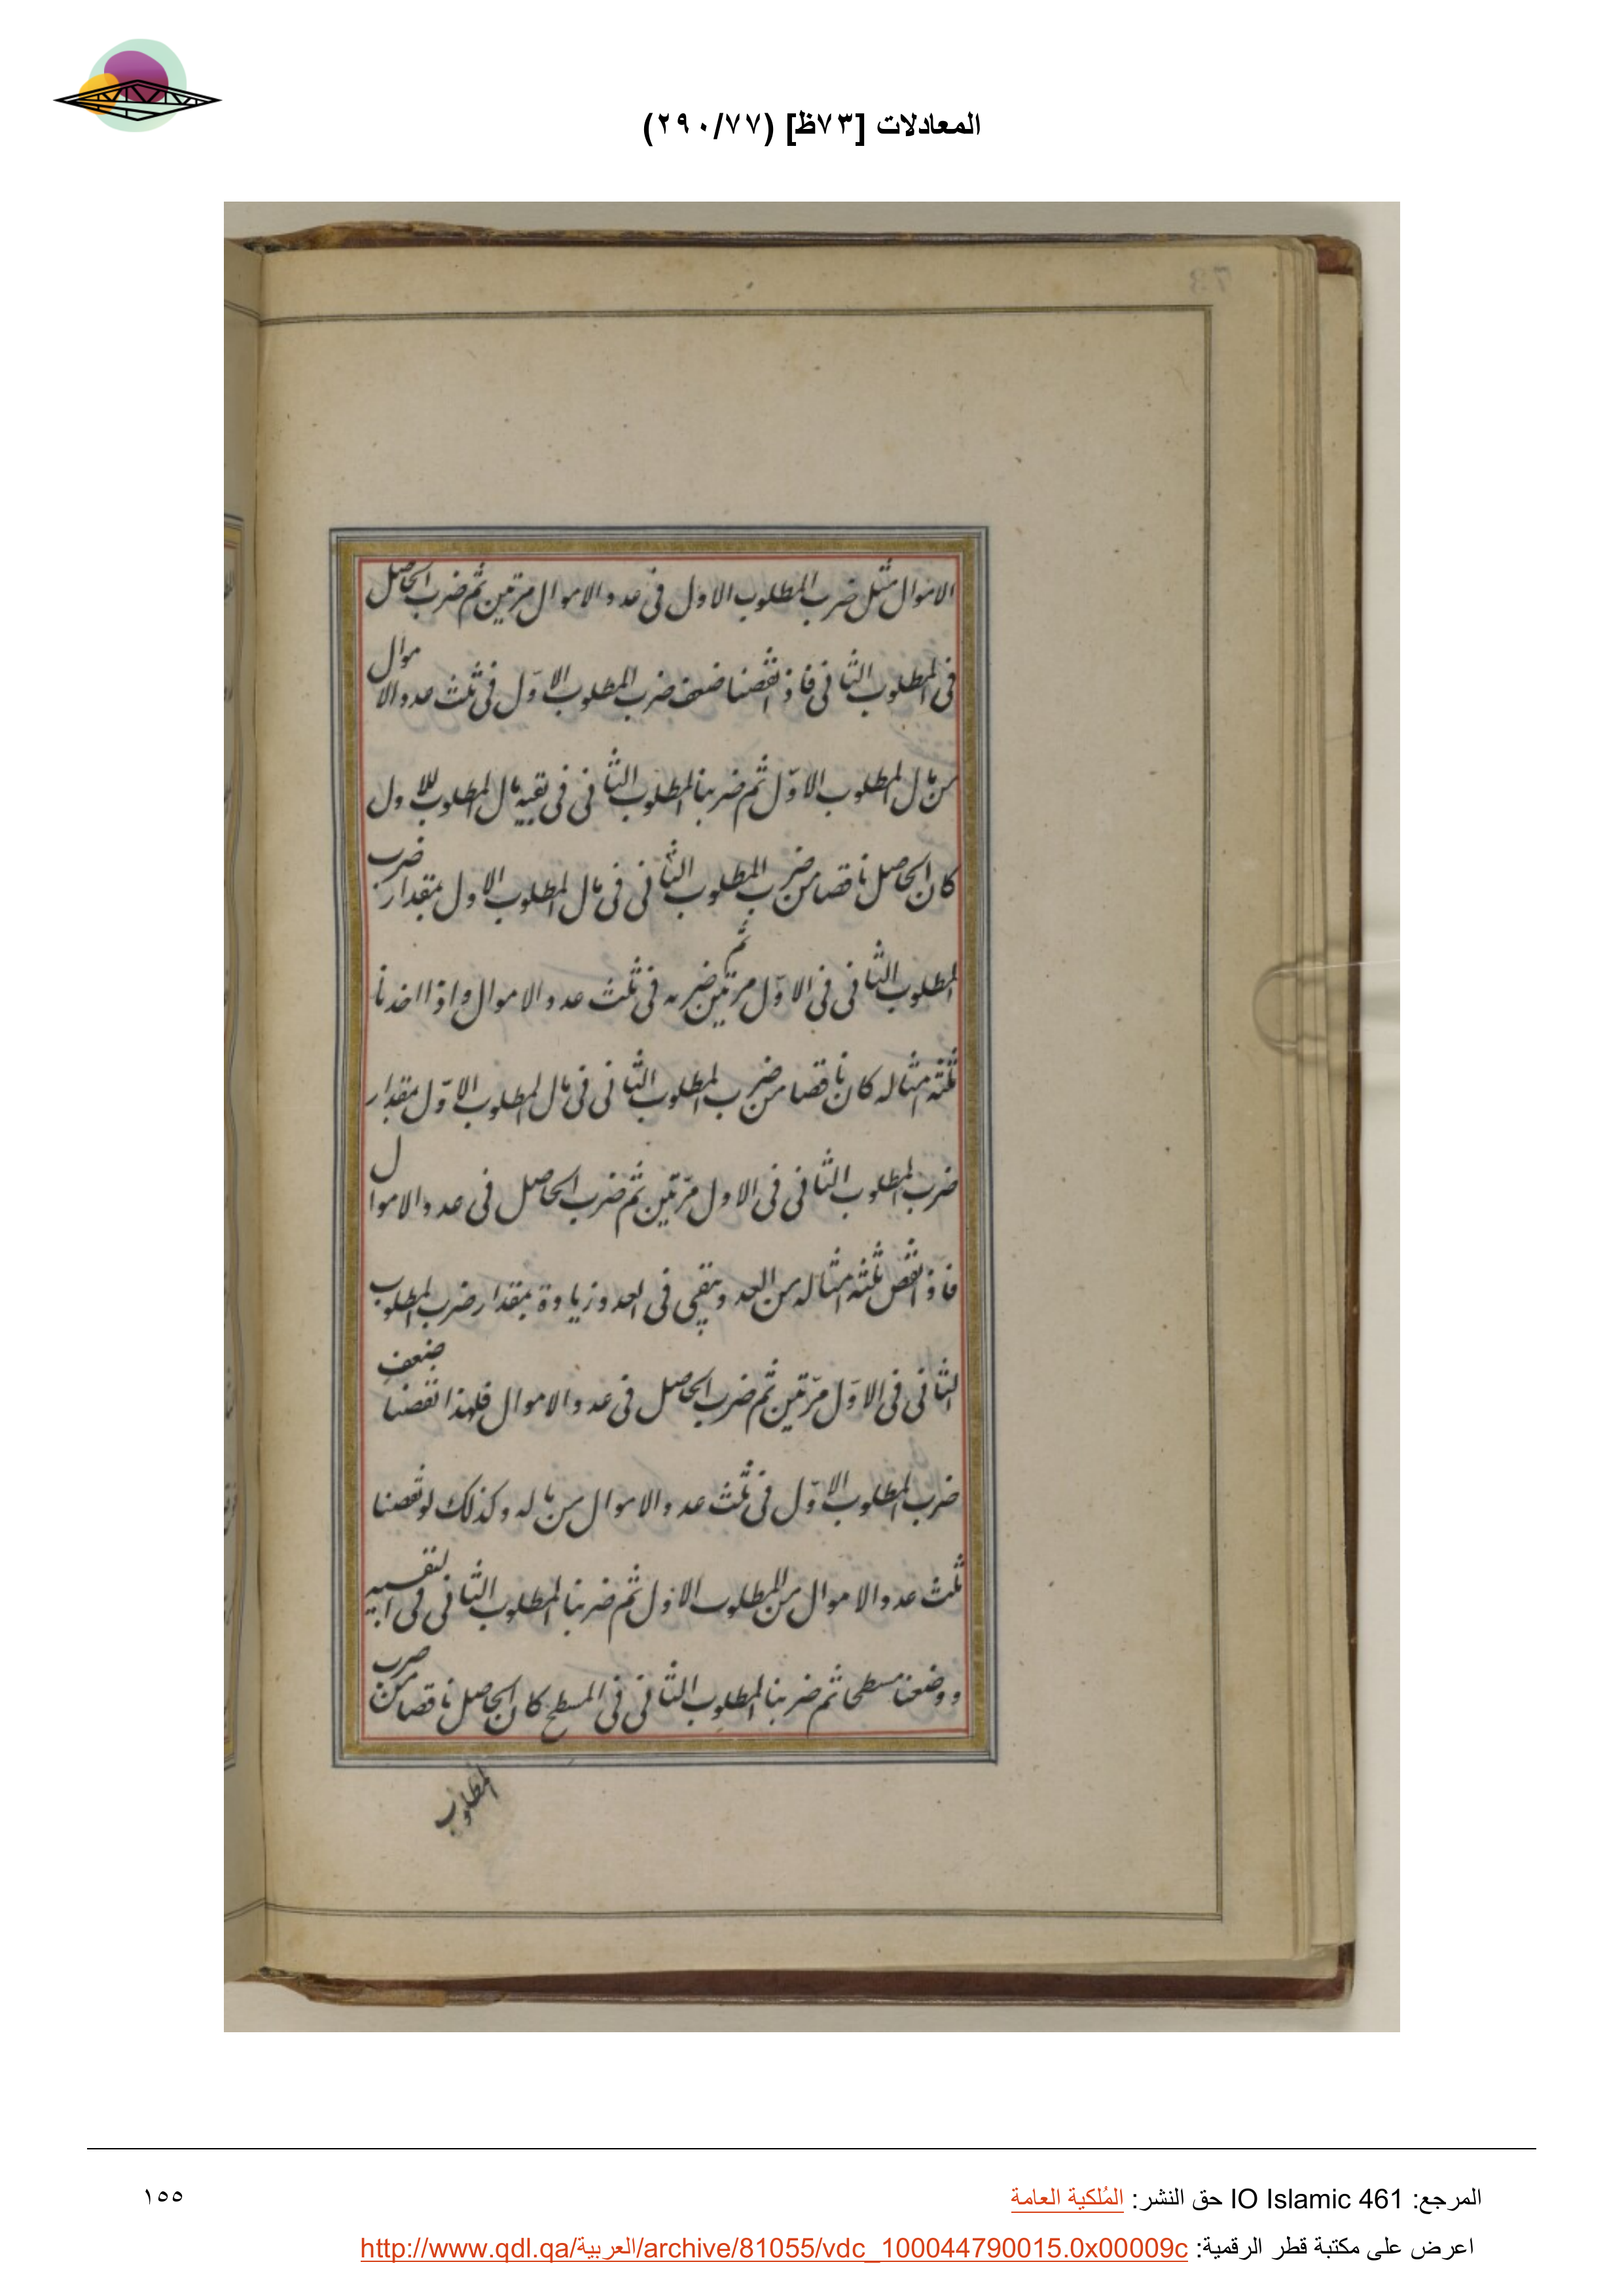 المعادلات [٧٣ظ] (٢٩٠/٧٧)
73
الاموال مثل ضرب المطلوب الاول فى عدد الاموال مرتين ثم ضرب الحاصل
فى المطلوب الثانى فاذا نقصنا ضعف ضرب المطلوب الاول فى ثلث عدد الاموال
من مال المطلوب الاول ثم ضربنا المطلوب الثانى فى بقية مال المطلوب الاول
كان الحاصل ناقصا من ضرب المطلوب الثانى فى مال المطلوب الاول بمقدار ضرب
المطلوب الثانى فى الاول مرتين ثم ضربه فى ثلث عدد الاموال واذا اخذنا
ثلثة امثاله كان ناقصا من ضرب المطلوب الثانى فى مال المطلوب الاول بمقدار
ضرب المطلوب الثانى فى الاول مرتين ثم ضرب الحاصل فى عدد الاموال
فاذا نقص ثلثة امثاله من العدد يبقى فى العدد زيادة بمقدار ضرب المطلوب
الثانى فى الاول مرتين ثم ضرب الحاصل فى عدد الاموال فلهذا نقصنا ضعف
ضرب المطلوب الاول فى ثلث عدد الاموال من ماله وكذلك لو نقصنا
ثلث عدد الاموال من المطلوب الاول ثم ضربنا المطلوب الثانى فى
ووضعنا مسطحا ثم ضربنا المطلوب الثانى فى المسطح كان الحاصل ناقصا من ضرب
المطلوب
المرجع: IO Islamic 461 حق النشر: المُلكية العامة
١٥٥
اعرض على مكتبة قطر الرقمية: http://www.qdl.qa/العربية/archive/81055/vdc_100044790015.0x00009c